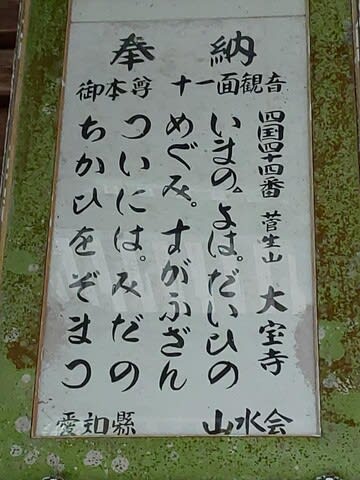 奉納
四国四十四番 菅生山 大宝寺
御本尊 十一面観音
いまの。よは。だいひの
めぐみ。すがふざん
ついには。みだの
ちかひをぞまつ
愛知縣
山水会